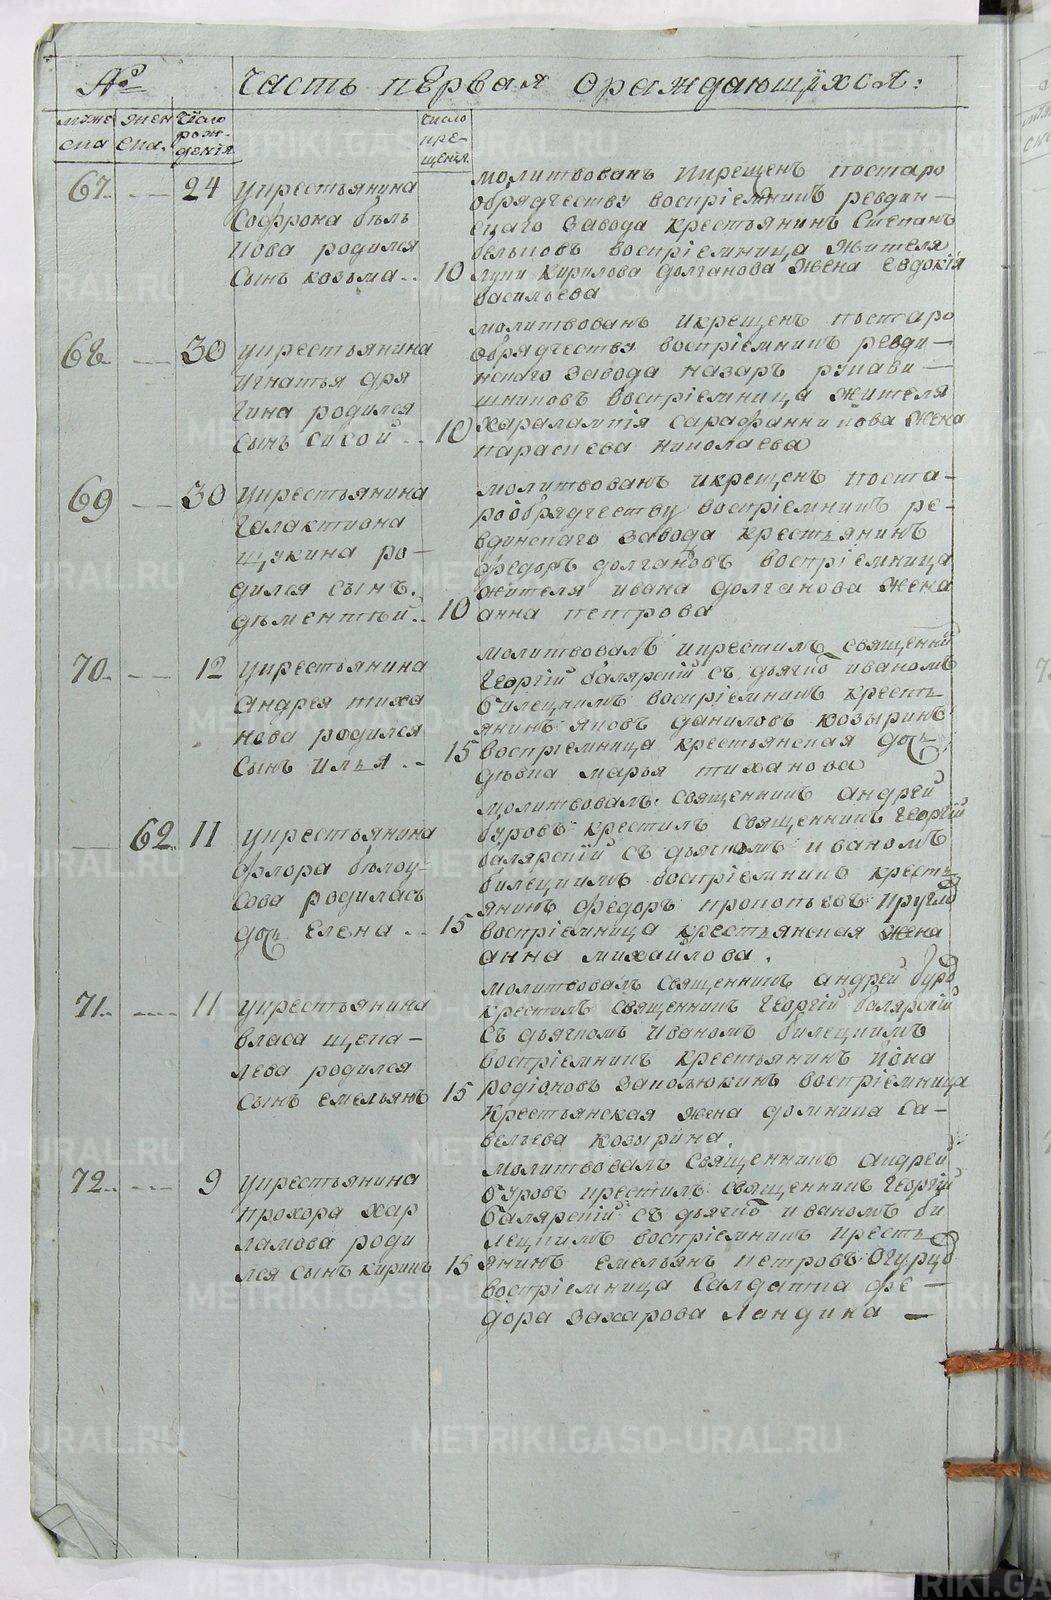 № Часть первая ораждающихся:
муже ска
женска.
Число рождения
число крещения
67. 24 укрестьянина
Софрона бѣль
кова родился
Сынъ козьма.. 10
молитвованъ икрещенъ постаро
обрядчеству воспрiемникъ ревдин-
скаго Завода крестьянинъ Степанъ
бельковъ воспрiемница жителя
лупи Кирилова долганова жена евдокiя
васильева
68. 30 укрестьянина
игнатья дря
гина родился
сынъ сисой.. 10
молитвованъ икрещенъ постаро
обрядчеству воспрiемникъ ревди-
нскаго завода назаръ рукави-
шниковъ воспрiемница жителя
харалампiя сарафанникова жена
параскева николаева
69 30 укрестьянина
Галактиона
щукина ро-
дился сынъ.
дѣментiй.. 10
молитвованъ икрещенъ поста-
рообрядчеству воспрiемникъ ре-
вдинскаго завода крестьянинъ
федоръ долгановъ воспрiемница
жителя ивана долганова жена
анна петрова
70. 12 укрестьянина
андрея тиха
нова родился
сынъ илья.. 15
молитвовалъ икрестилъ священни
Георгiй балярскiй съ дьячко иваномъ
билецкимъ воспрiемникъ кресть
янинъ яковъ даниловъ козыринъ
воспрiемница крестьянская дочь
дѣвка марья тиханова
62. 11 укрестьянина
флора бѣлоу-
сова родилась
дочь елена.. 15
молитвовалъ: священникъ андрей
буровъ крестилъ священникъ Георгiй
балярскiй съ дьячкомъ иваномъ
билецкимъ воспрiемникъ кресть
янинъ федоръ прокопьевъ кругло
воспрiемница крестьянская жена
анна михайлова.
71.. 11 укрестьянина
власа щепа-
лева родился
сынъ емельянъ 15
молитвовалъ священникъ андрей буро
крестилъ священникъ Георгiй балярскiй
съ дьячкомъ иваномъ билецкимъ
воспрiемникъ крестьянинъ иона
родiоновъ заколюкинъ воспрiемница
крестьянская жена домника са-
вельева козырина.
72.. 9 укрестьянина
прохора хар
ламова роди
лся сынъ кирикъ 15
молитвовалъ священникъ андрей
буровъ крестилъ священникъ Георгiй
балярскiй съ дьячко иваномъ би
лецкимъ воспрiемникъ кресть
янинъ емельянъ петровъ огурцо
воспрiемница Салдатка фе-
дора захарова Ландина —